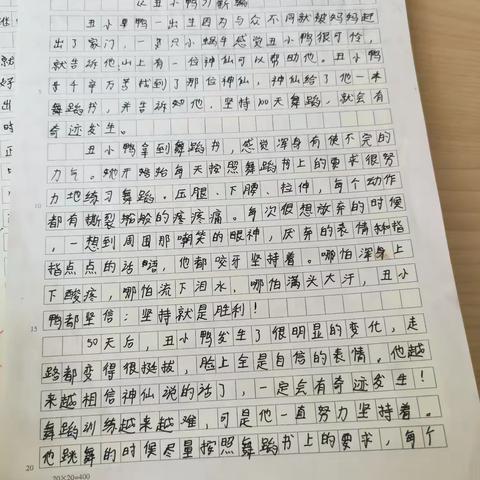 丑小鸭一出生因为与众不同就被妈妈赶
出了家门，一只小蜗牛感觉丑小鸭很可怜，
就告诉他山上有一位神仙可以帮助他。丑小鸭
千辛万苦找到了那位神仙，神仙给了他一本
舞蹈书，并告诉他，坚持100天舞蹈，就会有
奇迹发生。
丑小鸭拿到舞蹈书，感觉浑身有使不完的
力气。她开始每天按照舞蹈书上的要求很努
力地练习舞蹈。压腿、下腰、拉伸，每个动作
10
都有撕裂般的疼痛。每次很想放弃的时候
，一想到周围那嘲笑的眼神，厌弃的表情和指
指点点的话语，他都咬牙坚持着。哪怕浑身上
下酸疼，哪怕流下泪水，哪怕满头大汗，丑小
鸭都坚信：坚持就是胜利！
15
50天后，丑小鸭发生了很明显的变化，走
路都变得很挺拔，脸上全是自信的表情。他越
来越相信神仙说的话了，一定会有奇迹发生！
舞蹈训练越来越难，可是他一直努力坚持着。
他跳舞的时候尽量按照舞蹈书上的要求，每个
20
20×20=400